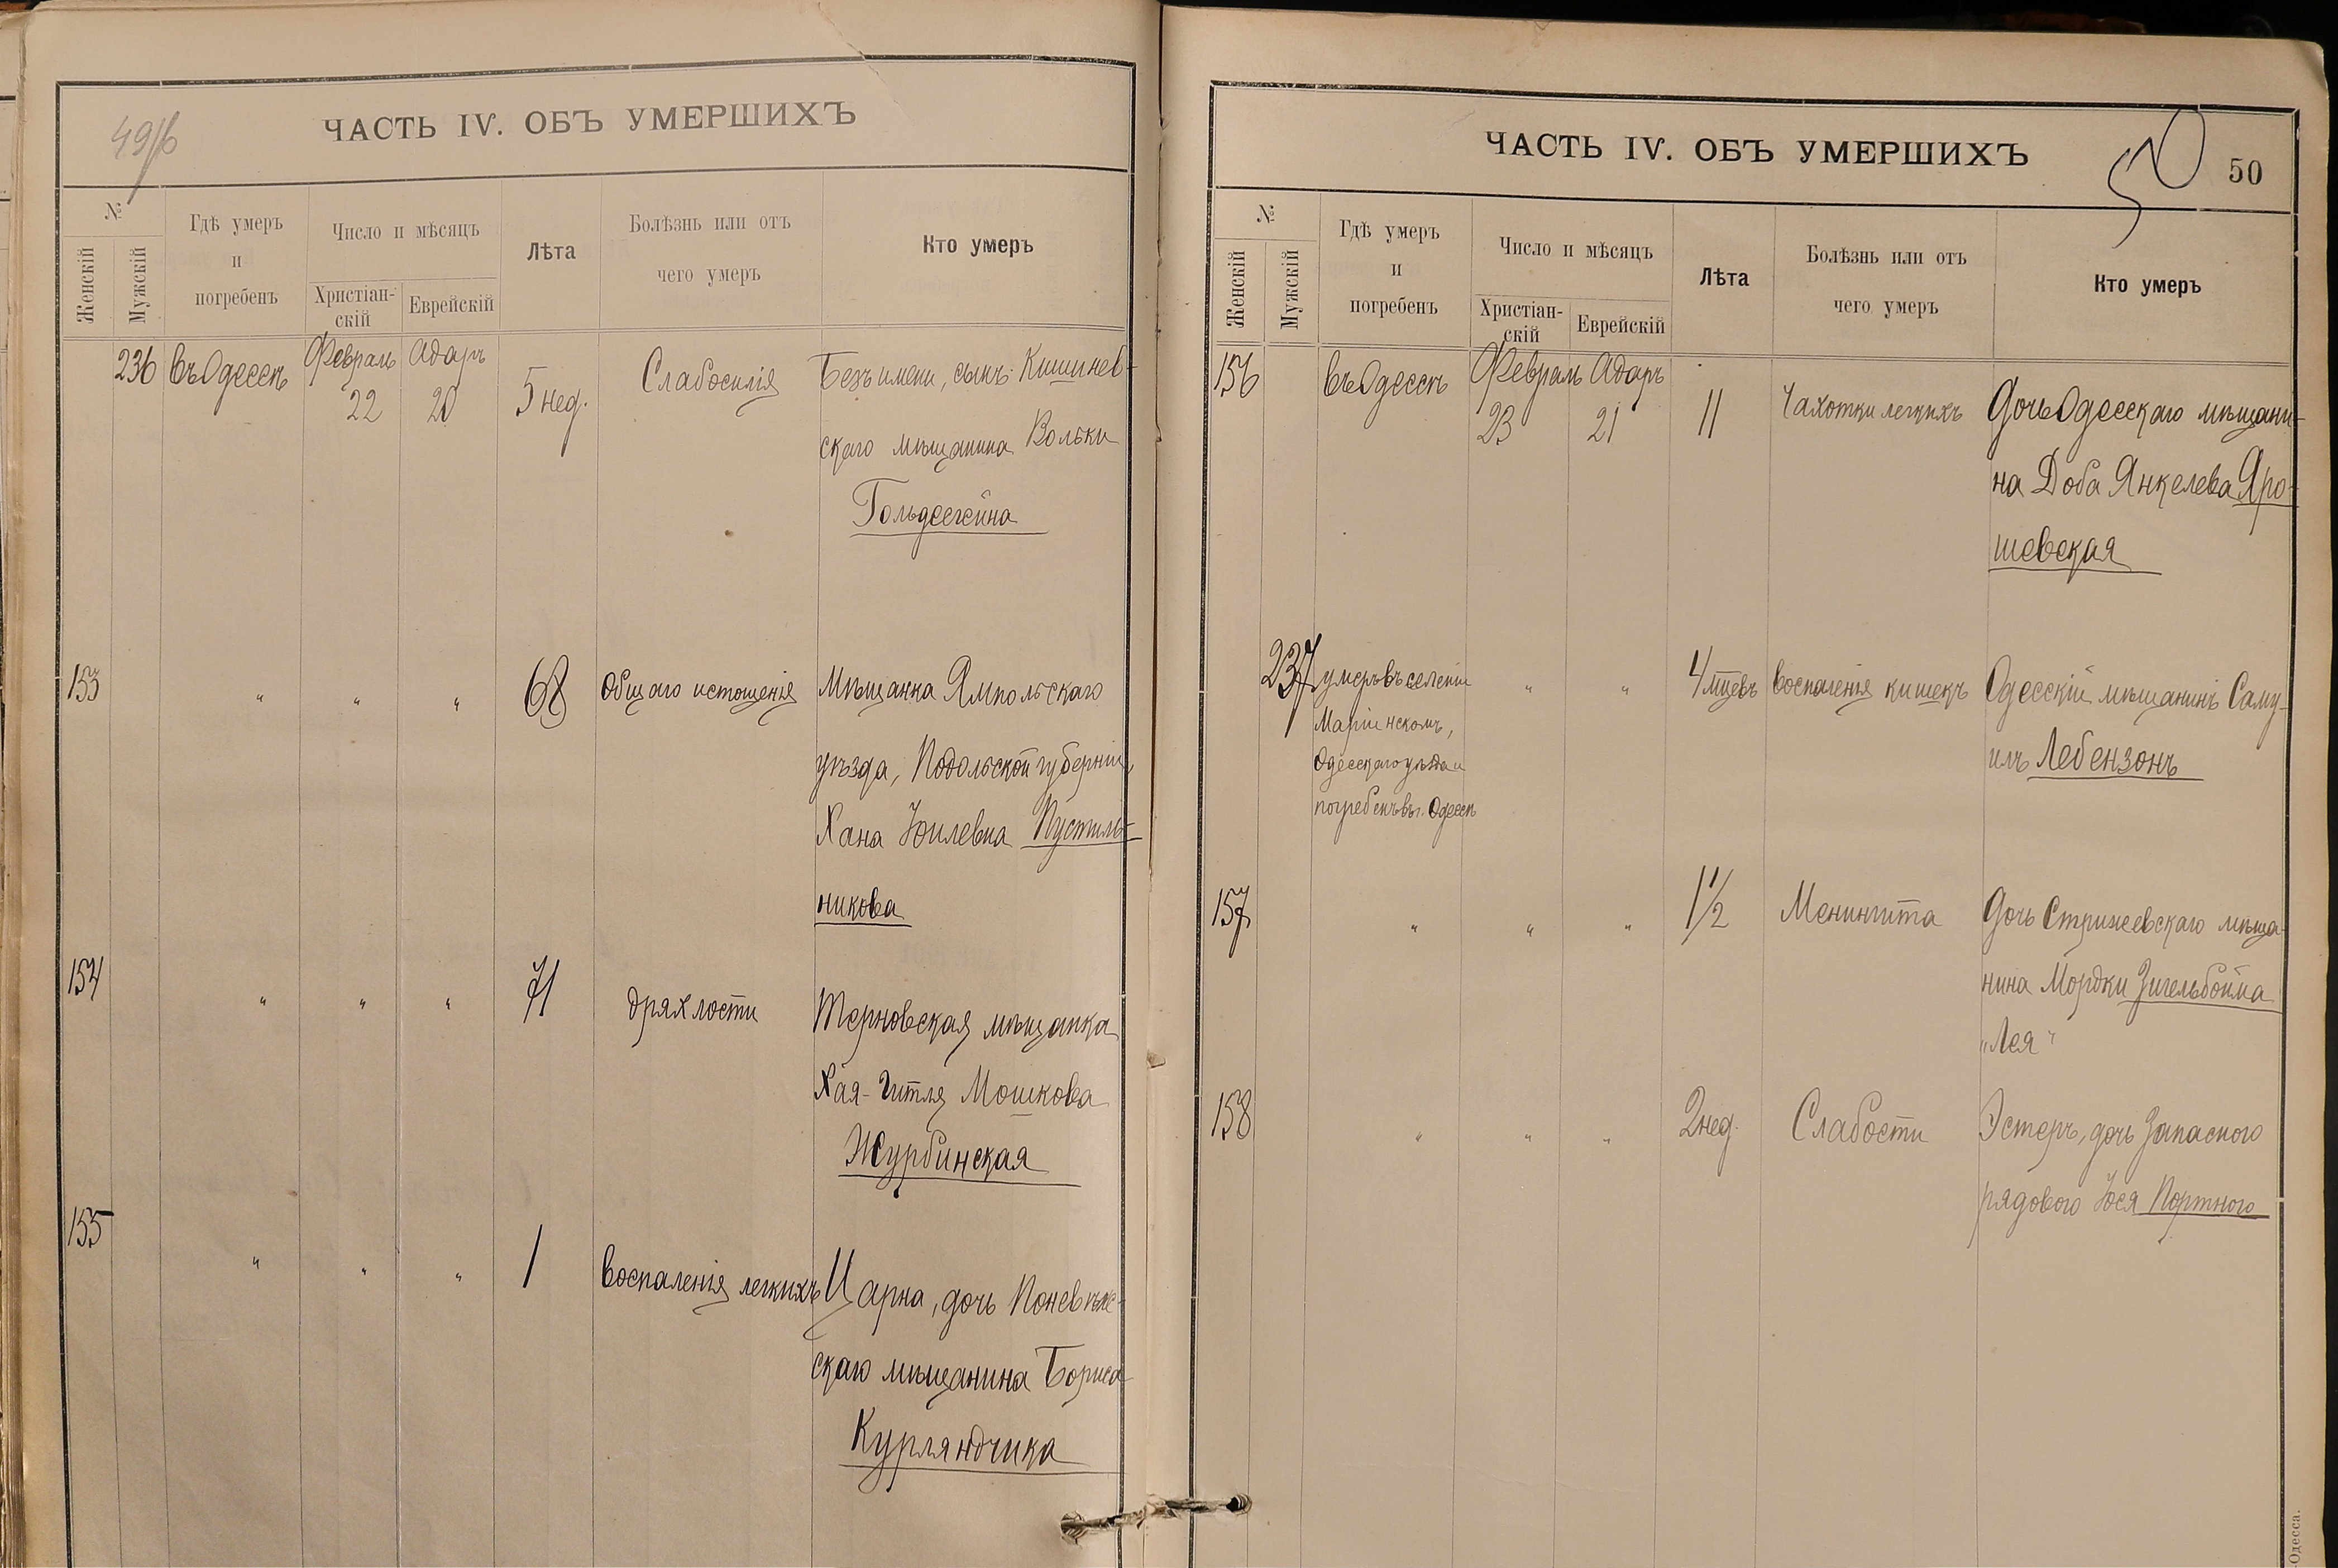 49/б
ЧАСТЬ IV. ОБЪ УМЕРШИХЪ
№
Женскій
Мужскій
Гдѣ умеръ
и
погребенъ
Число и мѣсяцъ
Христіан-
скій
Еврейскій
Лѣта
Болѣзнь или отъ
чего умеръ
Кто умеръ
236 въ Одессѣ Февраль Адаръ 5 нед. Слабосилія Безъ имени, сынъ Кишинев-
22 20
скаго мѣщанина Вольки
Гольдсегейна
153 " " " 68 Общаго истощенія Мѣщанка Ямпольскаго
уѣзда, Подольской губерніи,
Хана Юилевна Пустиль-
никова
154 " " " 71 дряхлости Терновская мѣщанка
Хая-Гитля Мошкова
Журбинская
155 " " " 1 Воспаленія легкихъ Царна, дочь Поневѣж-
скаго мѣщанина Бориса
Курляндчика
ЧАСТЬ IV. ОБЪ УМЕРШИХЪ
50
50
№
Женскій
Мужскій
Гдѣ умеръ
и
погребенъ
Число и мѣсяцъ
Христіан-
скій
Еврейскій
Лѣта
Болѣзнь или отъ
чего умеръ
Кто умеръ
156 въ Одессѣ Февраль Адаръ 11 Чахотки легкихъ Дочь Одесскаго мѣщани-
23 21
на Доба Янкелева Яро-
шевская
237 умеръ въ селеніи " " 4 мѣцевъ воспаленія кишекъ Одесскій мѣщанинъ Саму-
Маріинскомъ,
Одесскаго уѣзда и
илъ Лебензонъ
погребенъ въ г. Одессѣ
157 " " " 1 1/2 Менингита Дочь Стрижевскаго мѣща-
нина Мордки Зигельбойма
"Лея"
158 " " " 2 нед. Слабости Эстеръ, дочь Запасного
рядового Іося Портного
Одесса.